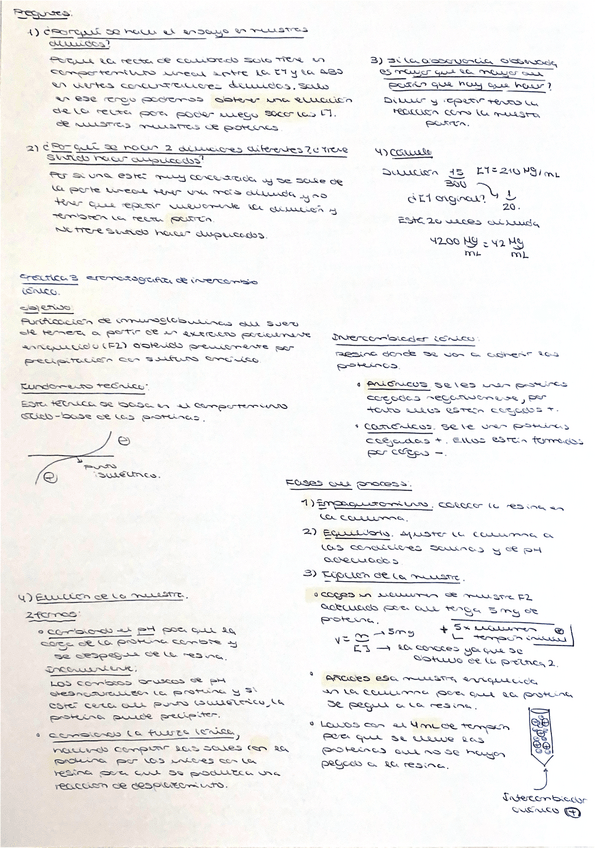 Preguntas:
1) ¿Por qué se hace el ensayo en muestras
diluidas?
Porque la recta de calibrado solo tiene un
comportamiento lineal entre la [ ] y la ABS
en ciertas concentraciones diluidas. Solo
en ese rango podremos obtener una ecuación
de la recta para poder luego sacar las [ ].
de nuestras muestras de proteínas.
2) ¿Por qué se hacen 2 diluciones diferentes? ¿Tiene
sentido hacer duplicados?
Por si una está muy concentrada y se sale de
la parte lineal tener una más diluida y no
tener que repetir nuevamente la dilución y
también la recta patrón.
No tiene sentido hacer duplicados.
3) Si la absorbancia obtenida
es mayor que la mayor del
patrón que hay que hacer?
Diluir y repetir tanto la
reacción como la muestra
patrón.
4) Cálculo
Dilución 15/300 [ ] = 210 Mg/mL
¿[ ] original? 1/20.
Está 20 veces diluida
4200 Mg/mL = 42 Mg/mL
Práctica 3 cromatografía de intercambio
iónico.
Objetivo
Purificación de inmunoglobulinas del suero
de ternera a partir de un extracto parcialmente
enriquecido (F2) obtenido previamente por
precipitación con sulfato amónico.
Fundamento teórico:
Esta técnica se basa en el comportamiento
ácido-base de las proteínas.
punto
isoeléctrico.
Intercambiador iónico:
Resina donde se van a adherir las
proteínas.
• Aniónicos se les unen proteínas
cargadas negativamente, por
tanto ellos están cargados +.
• Catiónicos. se le unen proteínas
cargadas +. ellos están formados
por cargas -.
Fases del proceso:
1) Empaquetamiento. colocar la resina en
la columna.
2) Equilibrio. ajustar la columna a
las condiciones salinas y de pH
adecuadas
3) Fijación de la muestra.
• coges un volumen de muestra F2
adecuado para que tenga 5 mg de
proteína.
V = m/[ ] → 5mg
→ la conoces ya que se
obtuvo de la práctica 2.
+ 5 x volumen
tampón inicial
• Añades esa muestra enriquecida
en la columna para que la proteína
se pegue a la resina.
• Lavas con el 4mL de tampón
para que se lleve las
proteínas que no se hayan
pegado a la resina.
Intercambiador
aniónico +
4) Elución de la muestra.
2 formas:
• cambiando el pH para que la
carga de la proteína cambie y
se despegue de la resina.
Inconveniente:
Los cambios bruscos de pH
desnaturalizan la proteína y si
está cerca del punto isoeléctrico, la
proteína puede precipitar.
• cambiando la fuerza iónica,
haciendo competir las sales con la
proteína por los uniones con la
resina para que se produzca una
reacción de desplazamiento.